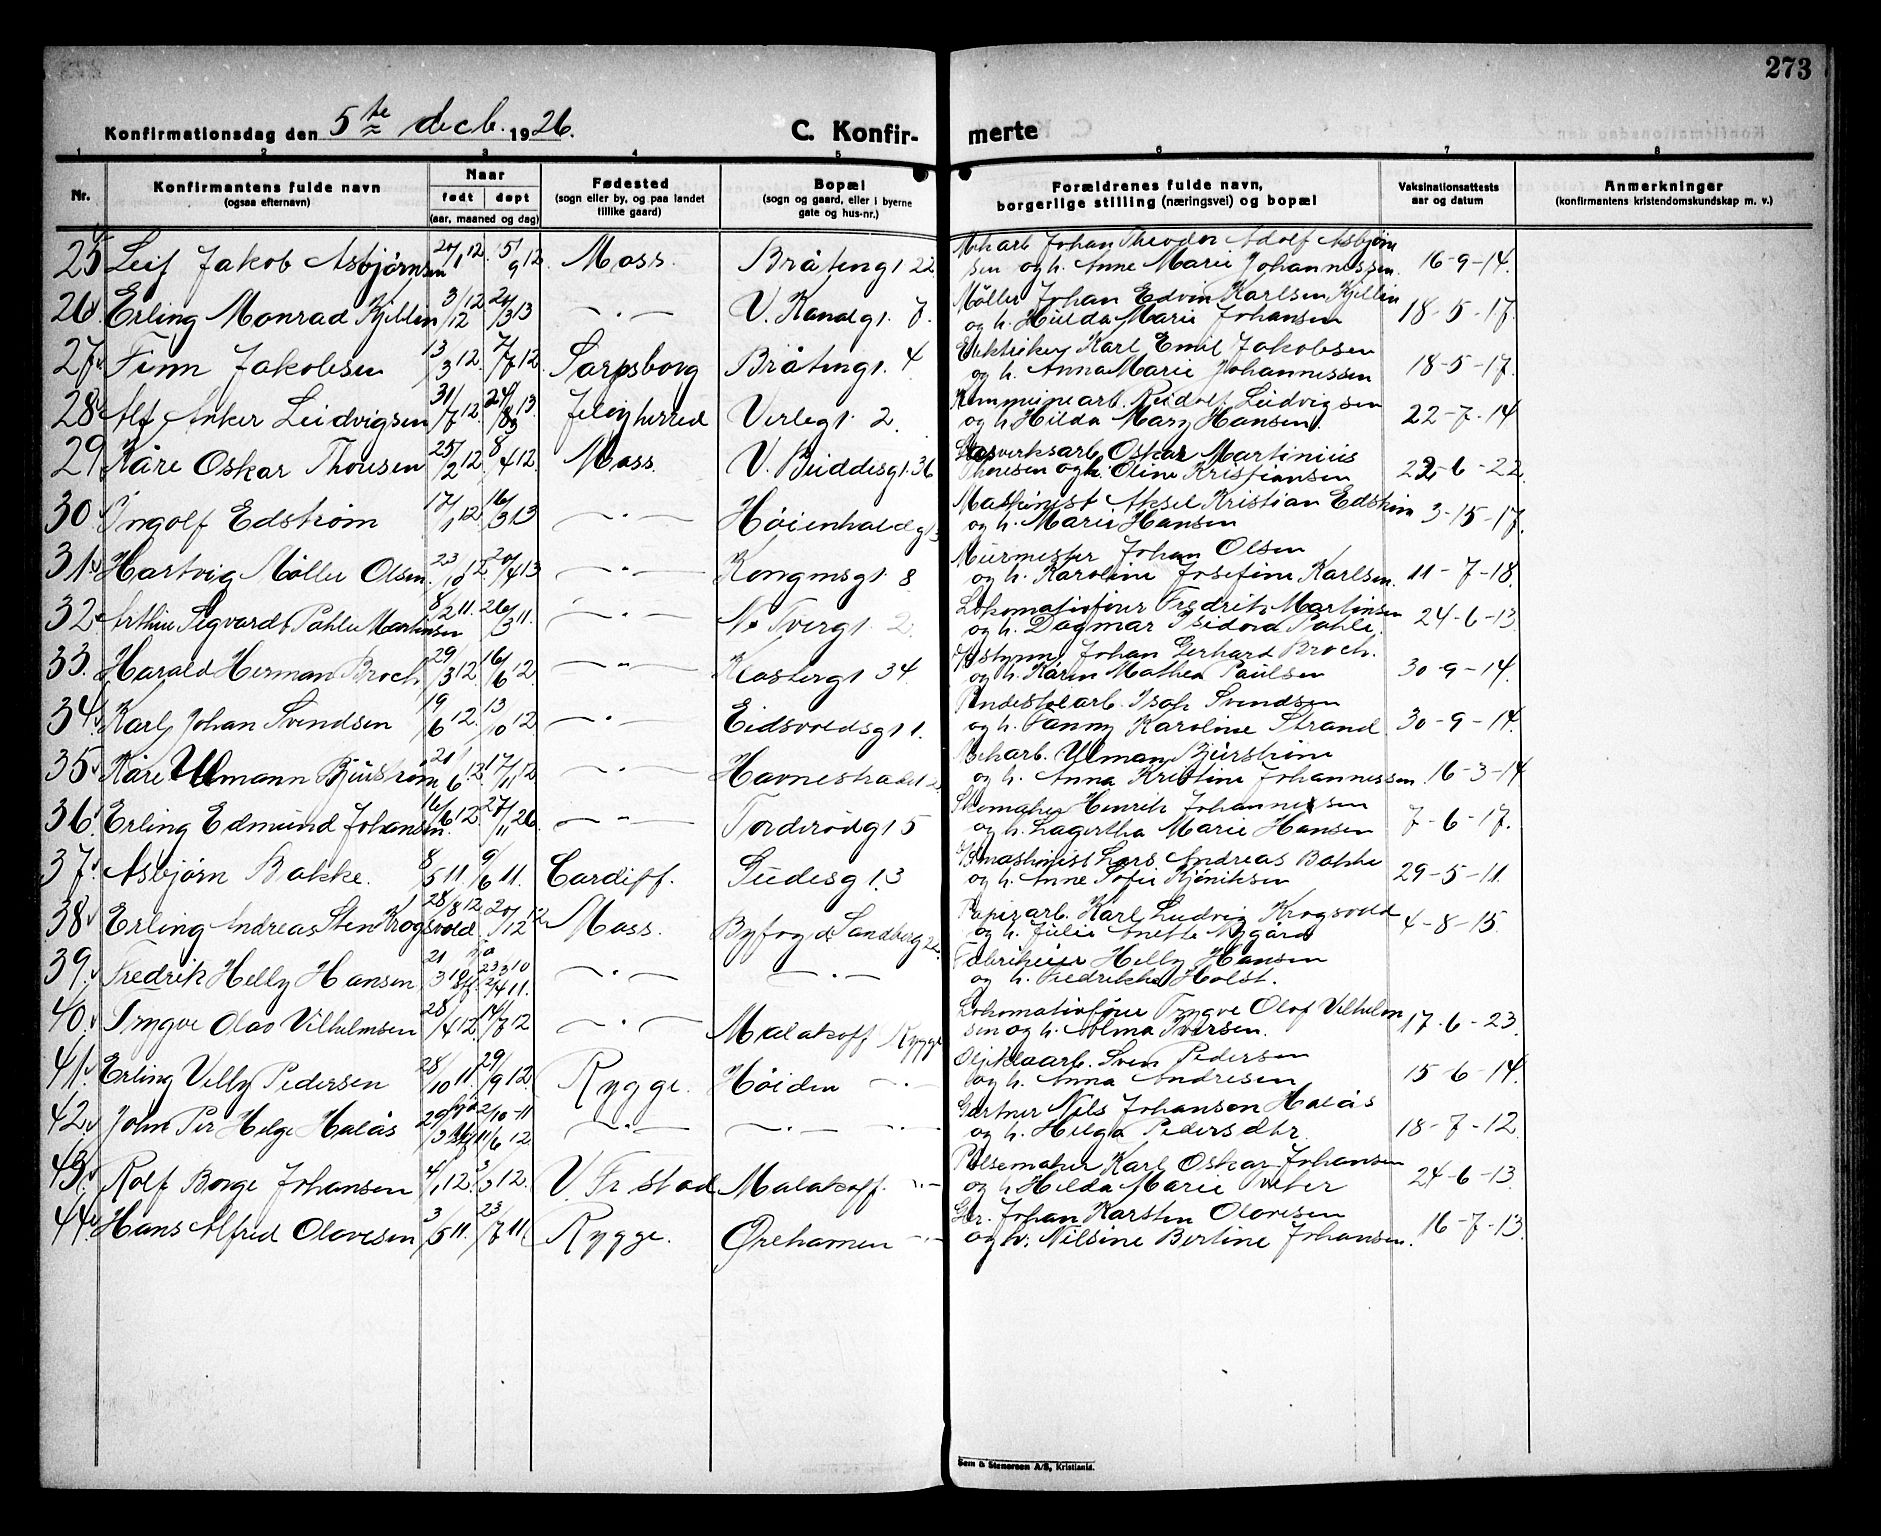 273
Konfirmationsdag den 5te decb. 1926.
C. Konfir- merte
1 2 3 4 5 6 7 8
Nr.
Konfirmantens fulde navn
(ogsaa efternavn)
Naar
født døpt
(aar, maaned og dag)
Fødested
(sogn eller by, og paa landet
tillike gaard)
Bopæl
(sogn og gaard, eller i byerne
gate og hus-nr.)
Forældrenes fulde navn,
borgerlige stilling (næringsvei) og bopæl
Vaksinationsattests
aar og datum
Anmerkninger
(konfirmantens kristendomskundskap m. v.)
25 Leif Jakob Asbjørnsen 20/1 12. 15/9 12 Moss. Bråtengt 22 Mek arb Johan Theodor Adolf Asbjørn
sen og h. Anne Marie Johannessen. 16-9-14.
26 Erling Monrad Kjellin 3/12 12. 20/3 13 —„— V. Kanalgt. 7. Møller Johan Edvin Karlsen Kjellin
og h. Hulda Marie Johansen 18-5-17.
27 Finn Jakobsen 13/3 12. 7/7 12 Sarpsborg Bråtengt. 4 Elektriker Karl Emil Jakobsen
og h. Anna Marie Johannessen 18-5-17.
28 Alf Anker Ludvigsen 31/7 12. 13. Jeløy herred Verlegt. 2. Kommunearb. Rudolf Ludvigsen
og h. Hilda Mary Hansen. 22-7-14
29 Kåre Oskar Thoresen 25/2 12. 8/4 12. Moss. V. Buddesgt. 36 Gasverksarb. Oskar Martinius
Thoresen og h. Oline Kristiansen 22-6-22.
30 Ingolf Edstrøm 17/1 12. 16/3 13 —„— Høienhaldgt Maskinist Aksel Kristian Edstrøm
og h. Marie Hansen 3-15-17.
31 Hartvig Møller Olsen 23/10 12 20/4 13 —„— Kongensgt. 8 Murmester Johan Olsen
og h. Karoline Josefine Karlsen. 11-7-18.
32 Arthur Segvardt Pahle Martinsen 8/2 11. 26/3 11. —„— N. Tvergt. 2. Lokomotivfører Fredrik Martinsen
og h. Dagmar Isidora Pahle. 24-6-13.
33. Harald Herman Broch 29/3 12. 16/6 12. —„— Klostergt 34. Johan Gerhard Broch.
og h. Karen Mathea Paulsen 30-9-14.
34 Karl Johan Svendsen 19/6 12. 13/10 12 —„— Eidsvoldsgt 1. Isak Svendsen
og h. Fanny Karoline Strand 30-9-14.
35 Kåre Ullmann Bjurstrøm 21/6 12. 17/11 12 —„— Havnestrædet Mekarb. Ulman Bjurstrøm
og h. Anna Kristine Johannessen. 16-3-14
36 Erling Edmund Johansen. 16/6 12. 27/11 26. —„— Torderødgt 5 Skomaker Henrik Johannessen
og h. Lagertha Marie Hansen 7-6-17.
37 Asbjørn Bakke. 8/5 11. 9/6 11. Cardiff. Gudesgt. 3 Lars Andreas Bakke
og h. Anne Sofie Kjøniksen 29-5-11.
38 Erling Andreas Sten Krogsvold 28/8 12. 20/12 12 Moss. Byfogd Sandbergg Papirarb. Karl Ludvig Krogsvold
og h. Julie Anette Nygård 4-8-15.
39. Fredrik Helly Hansen 21/3 10 23/3 10 2/4 11. —„— —„— Fabrikeier Helly Hansen
og h. Fredrikke Holst.
40. Trygve Olav Vilhelmsen 28/4 12. 14/7 12 —„— Malakoff Rygge Lokomotivfører Trygve Olof Vilhelm
sen og h. Alma Iversen. 17-6-23.
41 Erling Velly Pedersen 28/10 11. 29/9 12. Rygge. Høiden —„— Sven Pedersen
og h. Anna Andresen 15-6-14.
42 John Per Helge Halås 29/3 2/10-11 11/6 12. —„— —„— —„— Gartner Nils Johansen Halås
og h. Helga Pedersdtr. 18-7-12.
43. Rolf Borge Johansen 4/1 12. 3/3 12. V. Fr.stad Malakoff. —„— Pølsemaker Karl Oskar Johansen
og h. Hilda Marie 24-6-13.
44. Hans Alfred Olavesen 3/5 11. 23/7 11. Rygge. Ørehavnen —„— Johan Karsten Olavesen
og h. Nilsine Bertine Johansen. 16-7-13.
Sem & Stenersen A/S, Kristiania.